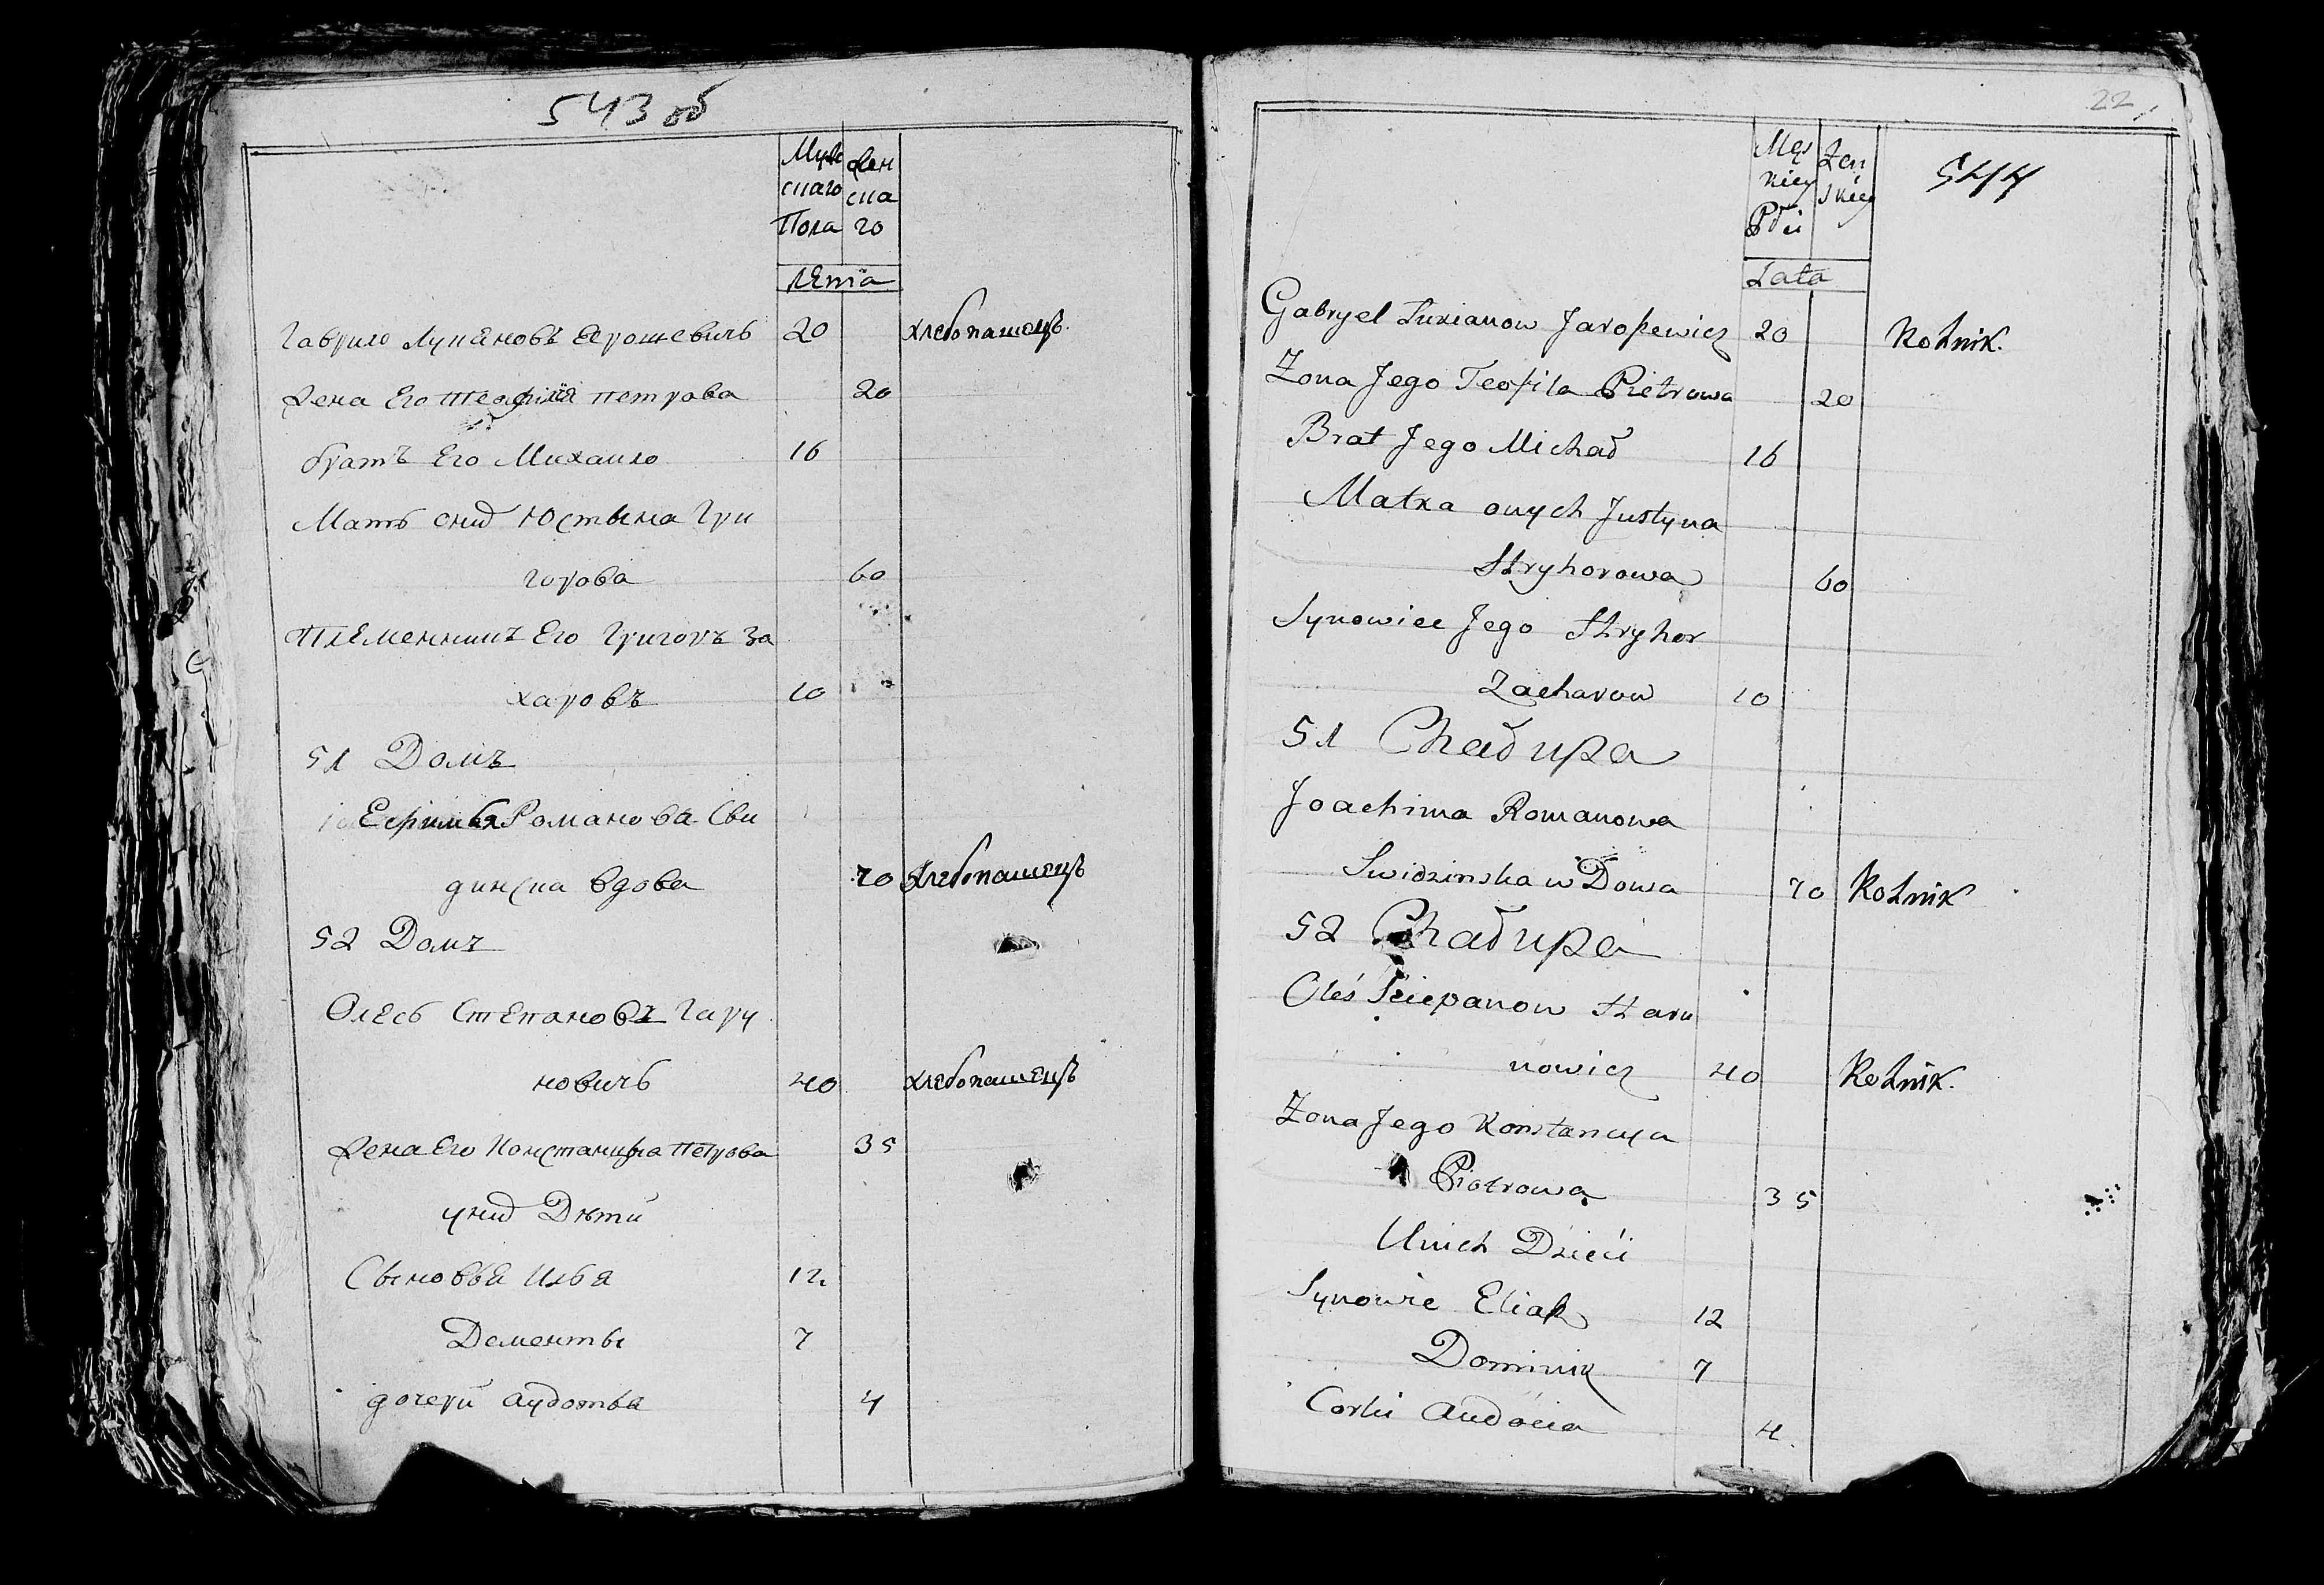 543 об
Муже Жен
скаго ска
Пола го
лета
Гаврило Лукяновъ Ерошевичь 20 хлебопашецъ
Жена Его Теофиля Петрова 20
братъ Его Михаило 16
Мать сихъ Юстына Гри
горова 60
Племенникъ Его Григоръ За
харовъ 10
51 Домъ
Романова Сви
динска вдова 70 хлебопашецъ
52 Домъ
Олесь Степановъ Гару
новичь 40 хлебопашецъ
Жена Его Констанцыа Петрова 35
унихъ Дѣти
Сыновья Илья 12
Дементы 7
дочери аудотья 4
22
544
Męs Żeń
kiey skiey
Płci
Lata
Gabryel Łukianow Jaroszewicz 20 Rolnik.
Żona Jego Teofila Pietrowa 20
Brat Jego Michał 16
Matka onych Justyna
Hryhorowa 60
Synowiec Jego Hryhor
Zacharow 10
51 Chałupa
Joachima Romanowa
Swidzinska wDowa 70 Rolnik
52 Chałupa
Oleś Sciepanow Haru
nowicz 40 Rolnik.
Żona Jego Konstancya
Piotrowa 35
Unich Dzieci
Synowie Eliasz 12
Dominik 7
Corki Audocia 4.